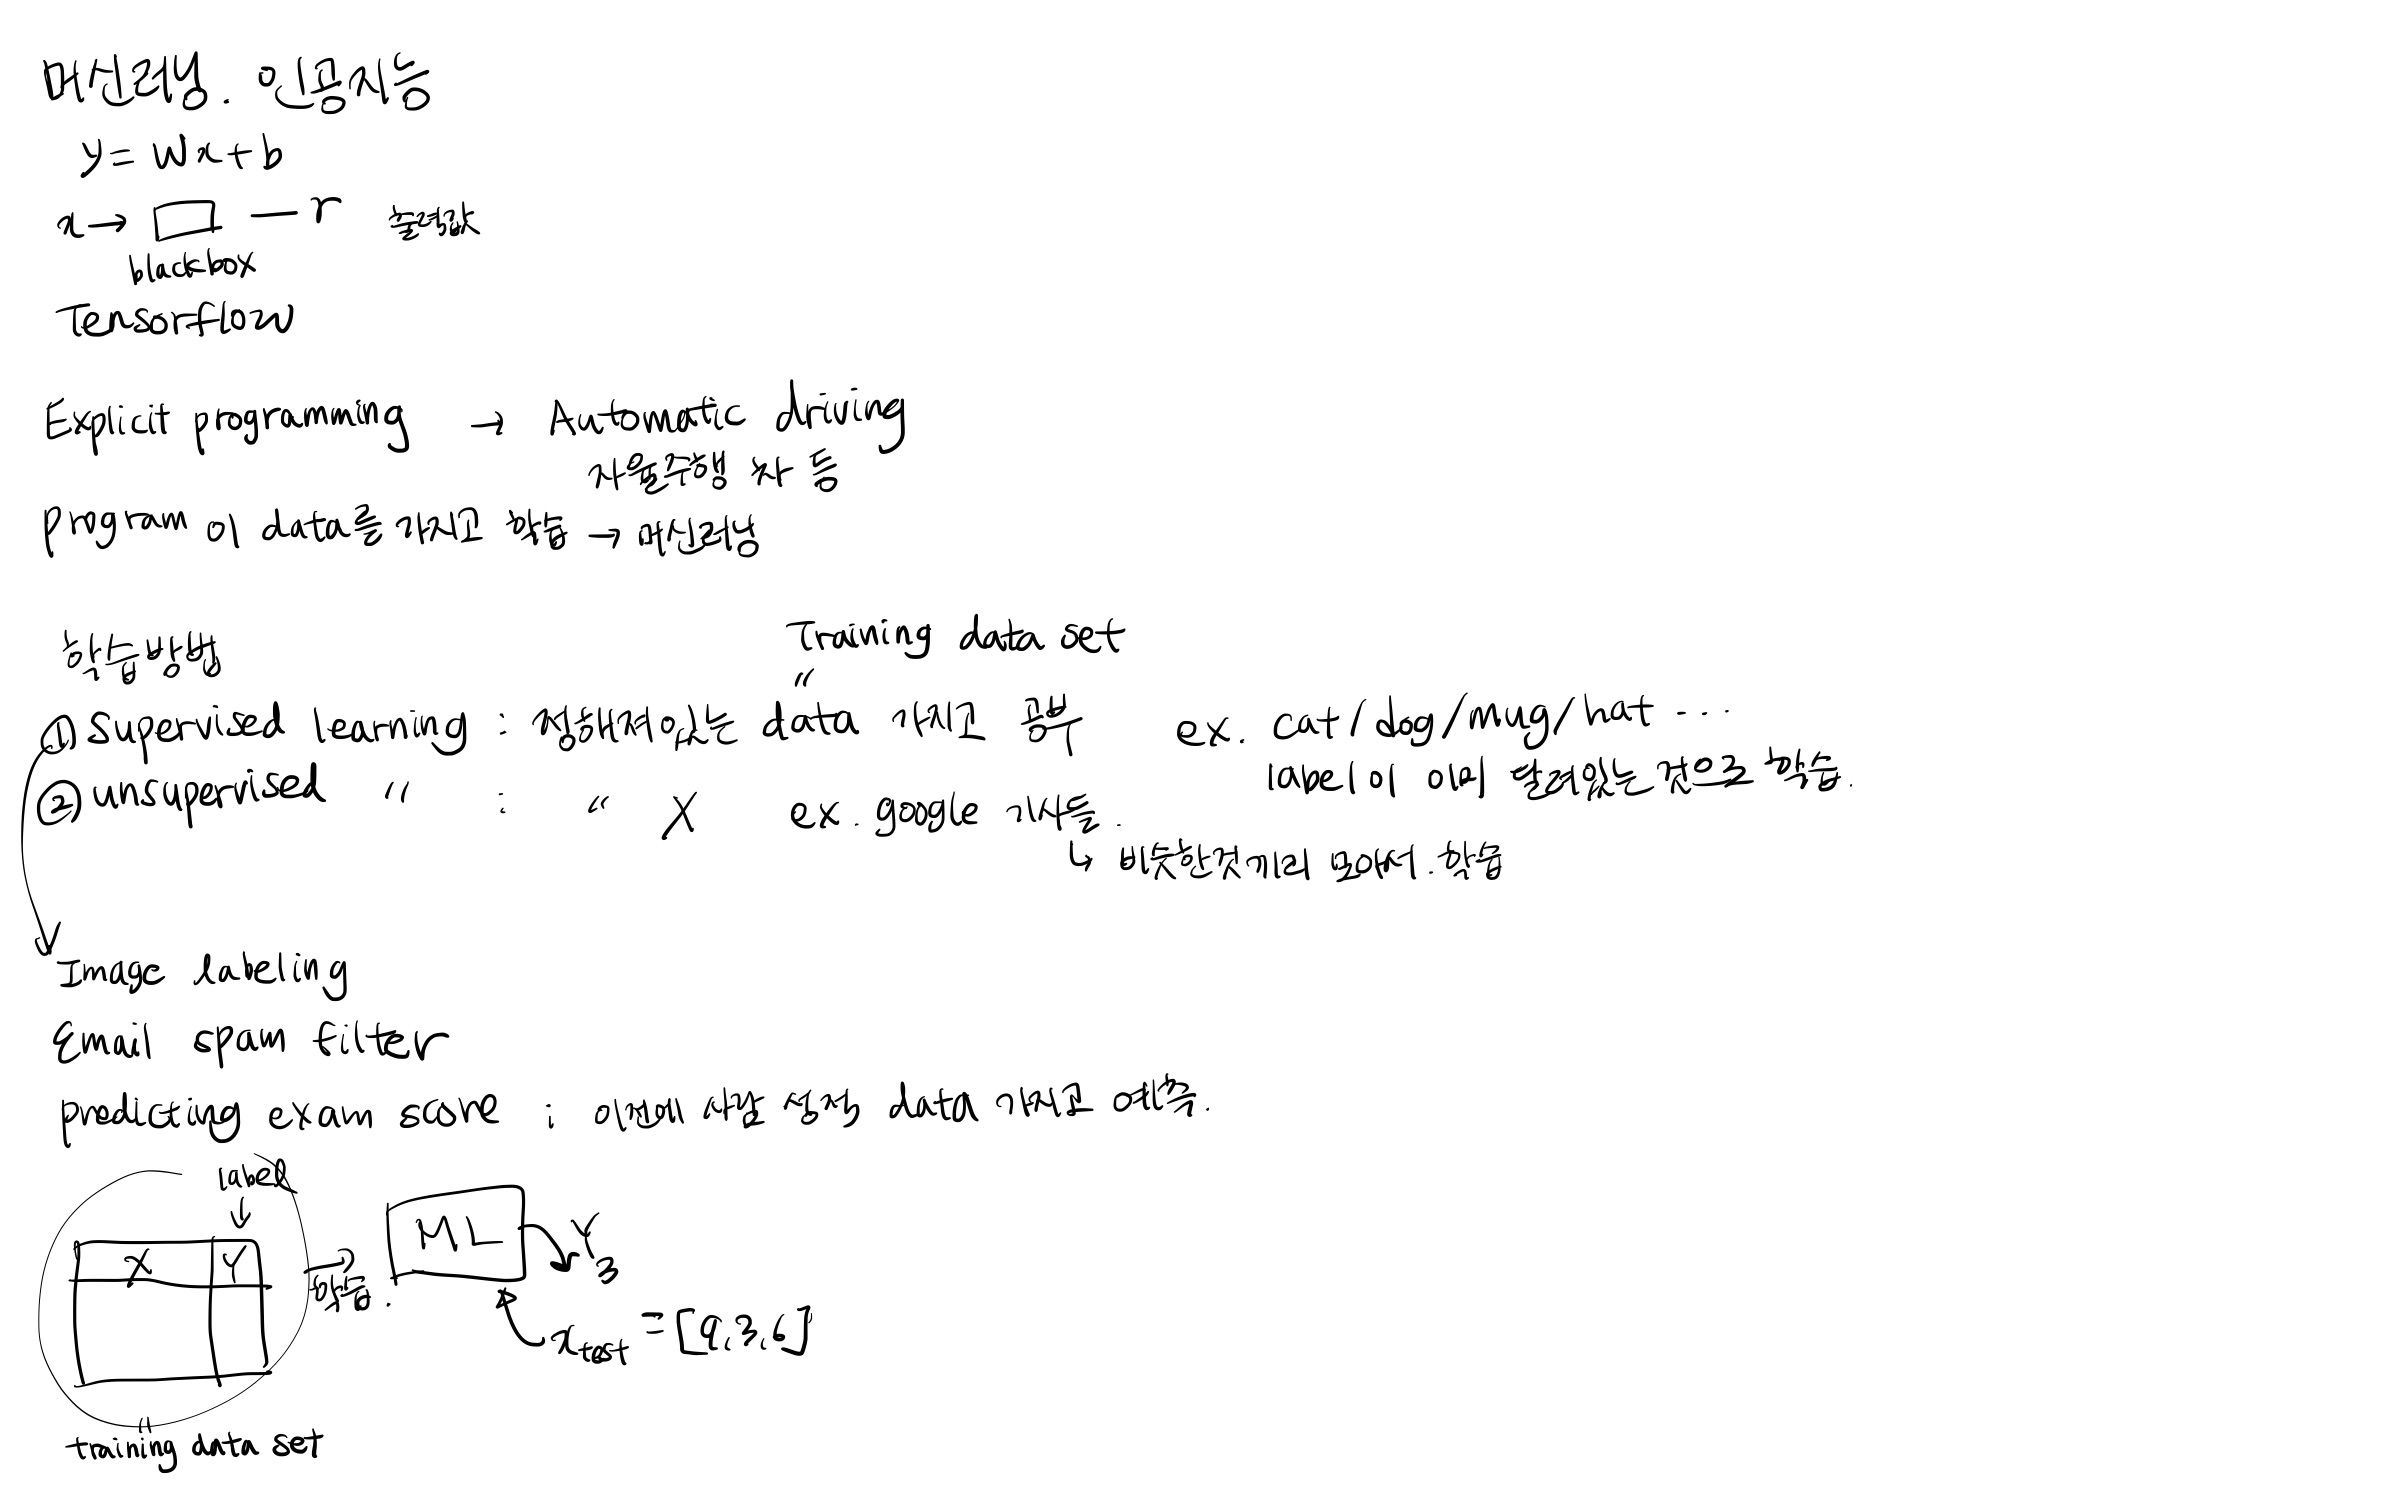 머신러닝. 인공지능
y = Wx + b
x → □ — r 출력값
blackbox
Tensorflow
Explicit programming → Automatic driving
자율주행 차 등
program 이 data를 가지고 학습 → 머신러닝
학습방법
Training data set
〃
① Supervised learning : 정해져있는 data 가지고 공부 ex. cat/dog/mug/hat ...
label이 이미 달려있는 것으로 학습.
② unsupervised 〃 : 〃 X ex. google 기사들.
↳ 비슷한것끼리 모아서. 학습
Image labeling
Email spam filter
predicting exam score ; 이전에 사람 성적 data 가지고 예측.
label
↓
X Y
학습.
ML
Y
3
x test = [9, 3, 6]
training data set